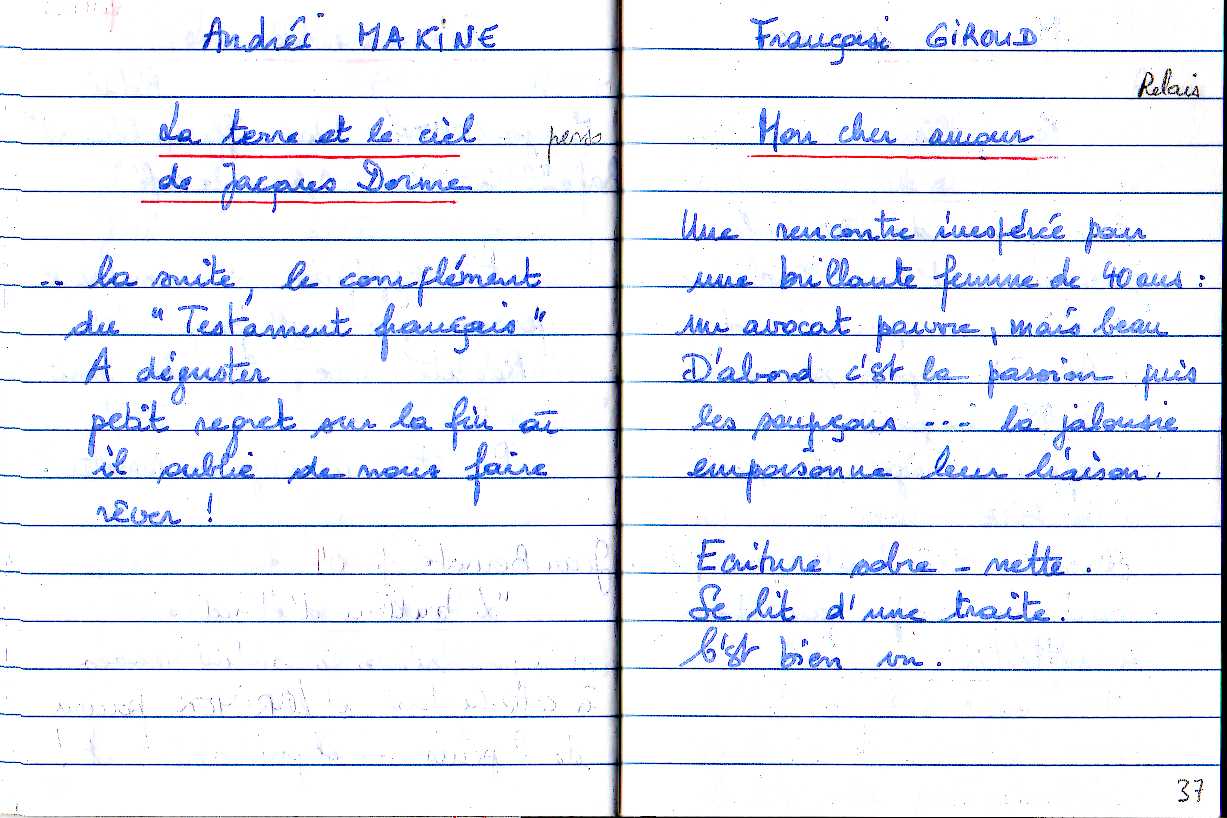 Andréi MAKINE
La terre et le ciel
perso
de Jacques Dorme
.. la suite, le complément
du "Testament français"
A déguster
petit regret sur la fin où
il oublie de nous faire
rêver !
Françoise GIROUD
Relais
Mon cher amour
Une rencontre inespérée pour
une brillante femme de 40 ans :
un avocat pauvre, mais beau
D'abord c'est la passion puis
les soupçons ... la jalousie
empoisonne leur liaison.
Ecriture sobre - nette.
Se lit d'une traite.
C'est bien vu.
37